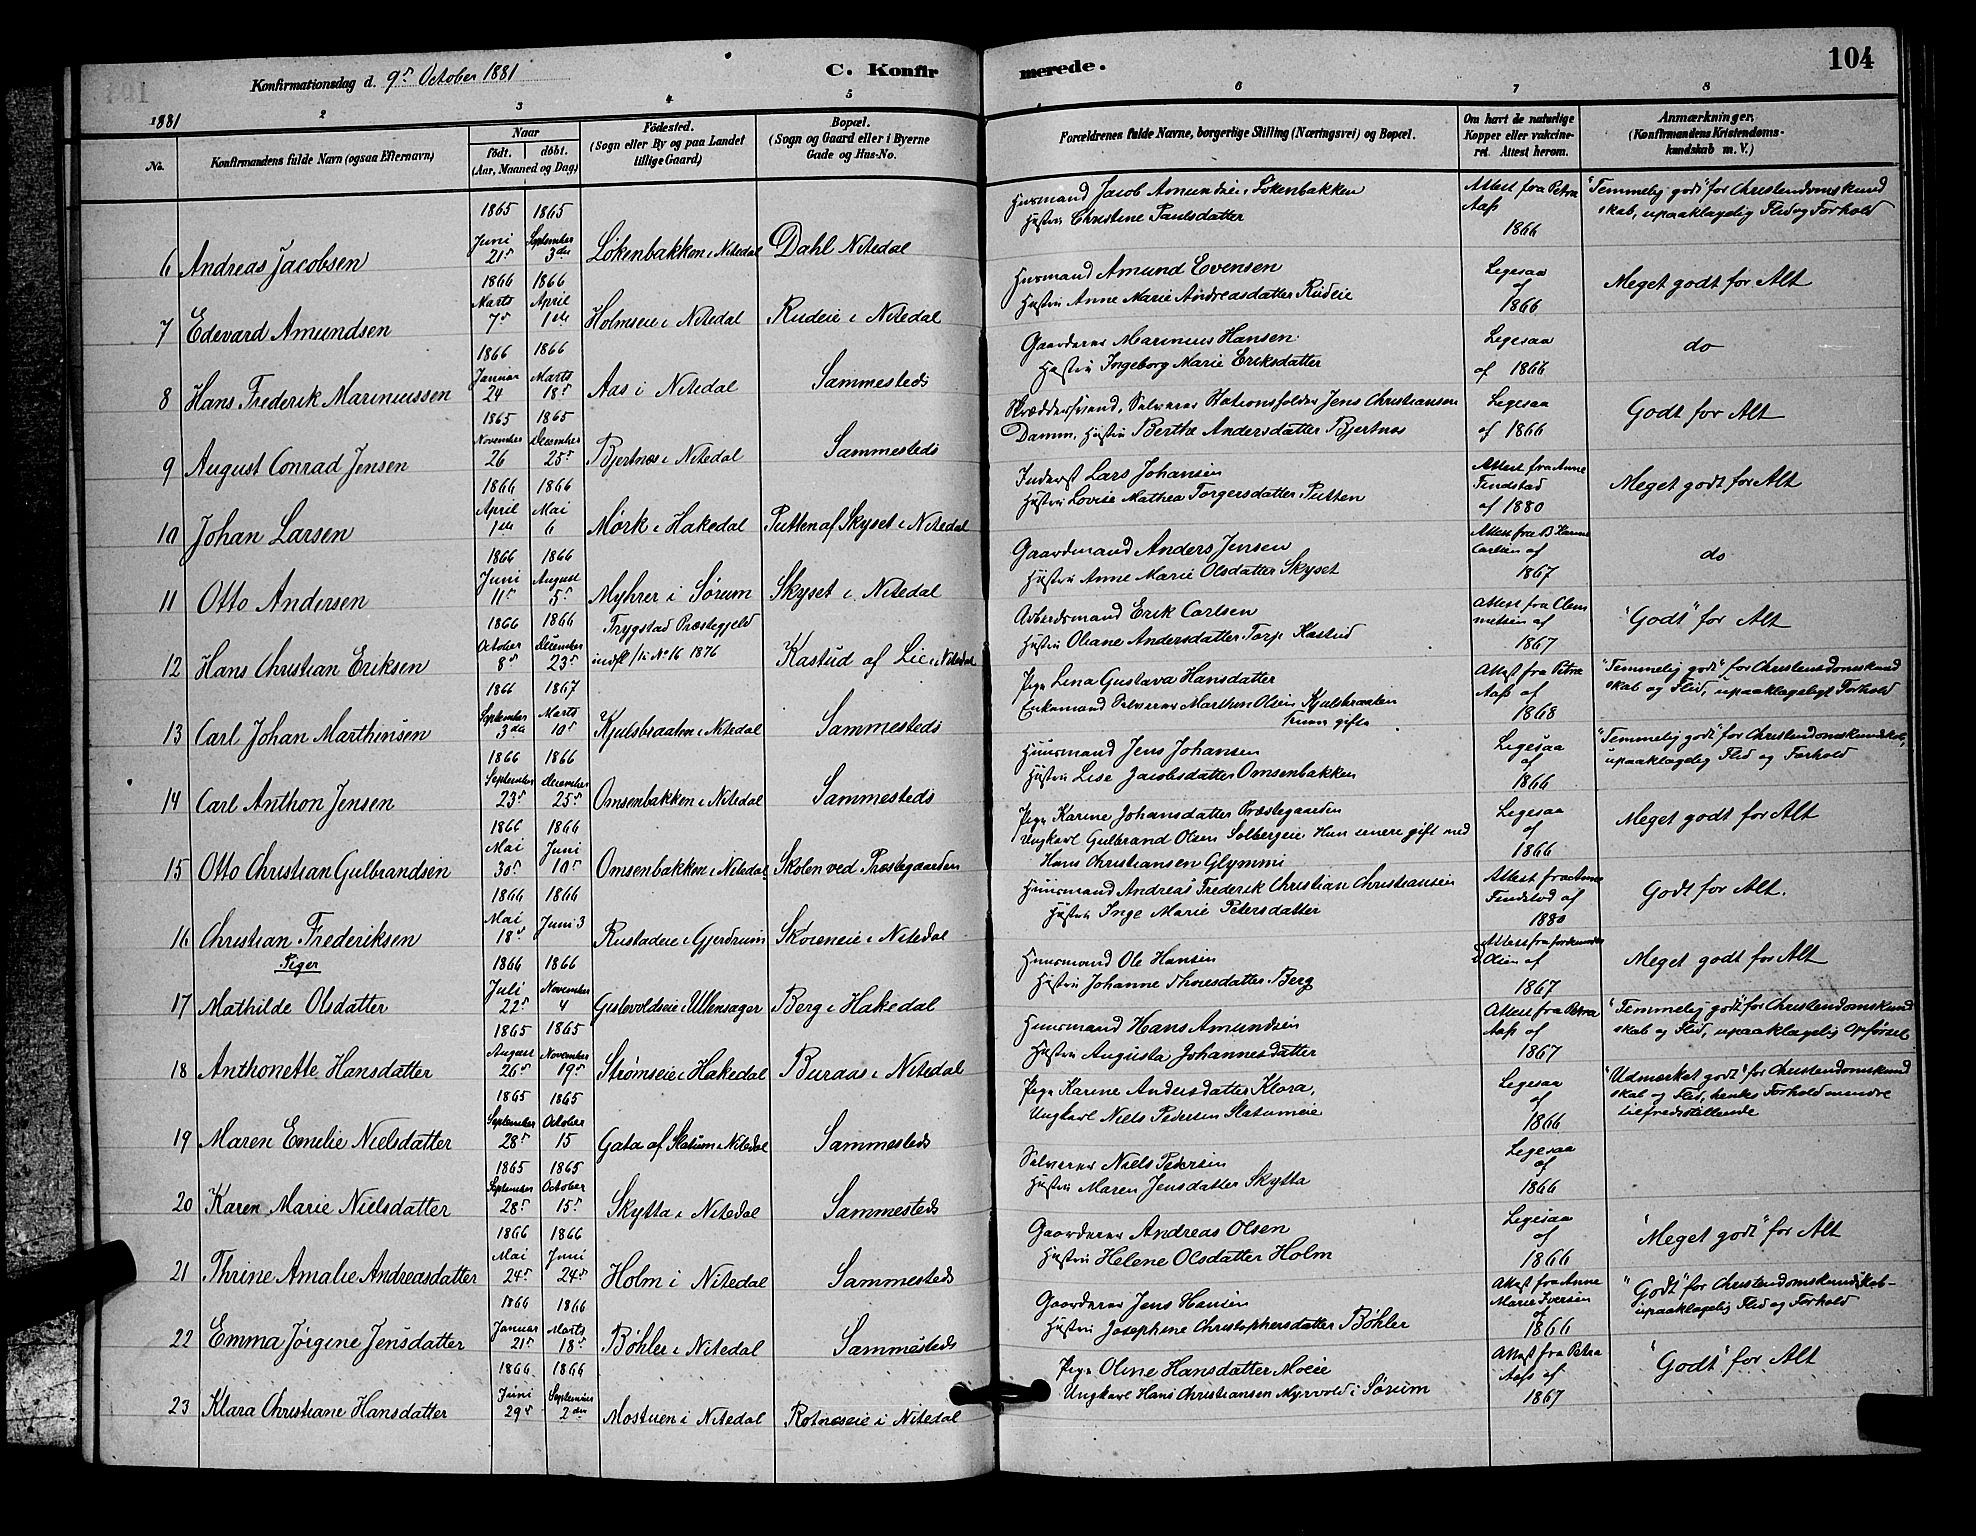 Konfirmationsdag d. 9de October 1881
C. Konfirmerede.
104
1881
2 3 4 5 6 7 8
No.
Konfirmandens fulde Navn (ogsaa Efternavn)
Naar
født. døbt.
(Aar, Maaned og Dag)
Fødested.
(Sogn eller By og paa Landet
tillige Gaard)
Bopæl.
(Sogn og Gaard eller i Byerne
Gade og Hus-No.
Forældrenes fulde Navne, borgerlige Stilling (Næringsvei) og Bopæl.
Om havt de naturlige
Kopper eller vakcine-
ret. Attest herom.
Anmærkninger.
(Konfirmandens Kristendoms-
kundskab m. V.)
6 Andreas Jacobsen 1865 Juni 21de 1865 September 3die Løkenbakken i Nitedal Dahl Nitedal
Huusmand Jacob Amundsen Løkenbakken
Hustru Christine Paulsdatter
Attest fra Petra
Aass
1866
"Temmelig godt" for Christendomskund
skab, upaaklagelig Flid og Forhold
7 Edevard Amundsen 1866 Marts 7de 1866 April 1ste Holmseie i Nitedal Rudeie i Nitedal
Huusmand Amund Evensen
Hustru Anne Marie Andreasdatter Rudeie
Legesaa
af
1866
Meget godt for Alt
8 Hans Frederik Marinussen 1866 Januar 24 1866 Marts 18de Aas i Nitedal Sammesteds
Gaardeier Marinius Hansen
Hustru Ingeborg Marie Eriksdatter
Legesaa
af 1866
do
9 August Conrad Jensen 1865 November 26 1865 December 25de Bjertnæs i Nitedal Sammesteds
Skræddersvend, Selveier Stationsholder Jens Christiansen
Damm, Hustru Berthe Andersdatter Bjertnæs
Legesaa
af 1866
Godt for Alt
10 Johan Larsen 1866 April 1ste 1866 Mai 6 Mørk i Hakedal Putten af Skyset i Nitedal
Inderst Lars Johansen
Hustru Lovise Mathea Torgersdatter Putten
Attest fra Anne
Findstad
af 1880
Meget godt for Alt
11 Otto Andersen 1866 Juni 11de 1866 August 5de Myhrer i Sørum Skyset i Nitedal
Gaardmand Anders Jensen
Hustru Anne Marie Olsdatter Skyset
Attest fra B Hanne
Carlsen af
1867
do
12 Hans Christian Eriksen 1866 October 8de 1866 December 23de Trygstad Præstegjeld
indfl /li No 16 1876 Kastud af Lie i Nitedal
Arbeidsmand Erik Carlsen
Hustru Oliane Andersdatter Torp Kastud
Attest fra Clem
metsen af
1867
"Godt" for Alt
13 Carl Johan Marthinsen 1866 September 3die 1867 Marts 10de Kjulsbraaten i Nitedal Sammesteds
Pige Lina Gustava Hansdatter
Enkemand Selveier Marthin Olsen Kjulsbraaten
hvem gifte
Attest fra Petra
Aass af
1868
"Temmelig godt" for Christendomskund
skab og Flid, upaaklageligt Forhold
14 Carl Anthon Jensen 1866 September 23de 1866 December 25de Omsenbakken i Nitedal Sammesteds
Huusmand Jens Johansen
Hustru Lise Jacobsdatter Omsenbakken
Legesaa
af
1866
"Temmelig godt" for Christendomskundskab,
upaaklagelig Flid og Forhold
15 Otto Christian Gulbrandsen 1866 Mai 30de 1866 Juni 10de Omsenbakken i Nitedal Skolen ved Præstegaarden
Pige Karine Johansdatter Præstegaarden
Ungkarl Gulbrand Olsen Solbergeie Hun senere gift med
Hans Christiansen Glymmi
Legesaa
af
1866
Meget godt for Alt
16 Christian Frederiksen 1866 Mai 18de 1866 Juni 3 Rustadeie i Gjerdrum Skoieneie i Nitedal
Huusmand Andreas Frederik Christian Christiansen
Hustru Inge Marie Petersdatter
Attest fra Anne
Findstad af
1880
Godt for Alt.
Piger
17 Mathilde Olsdatter 1866 Juli 22de 1866 November 4 Gislevoldseie i Ullensager Berg i Hakedal
Huusmand Ole Hansen
Hustru Johanne Thoresdatter Berg
Attest fra Jordemoder
Olsen af
1867
Meget godt for Alt
18 Anthonette Hansdatter 1865 August 26de 1865 November 19de Strømseie i Hakedal Buraas i Nitedal
Huusmand Hans Amundsen
Hustru Augusta Johannesdatter
Attest fra Petra
Aass af
1867
"Temmelig godt" for Christendomskund
skab og Flid, upaaklagelig Opførsel
19 Maren Emilie Nielsdatter 1865 September 28de 1865 October 15 Gata af Slatum i Nitedal Sammesteds
Pige Karine Andersdatter Klara,
Ungkarl Niels Pedersen Slatumeie
Legesaa
af
1866
"Udmærket godt" for Christendomskund
skab og Flid, hendes Forhold mindre
tilfredsstillende
20 Karen Marie Nielsdatter 1865 September 28de 1865 October 15de Skytta i Nitedal Sammesteds
Selveier Niels Pedersen
Hustru Maren Jensdatter Skytta
Legesaa
af
1866
21 Thrine Amalie Andreasdatter 1866 Mai 24de 1866 Juni 24de Holm i Nitedal Sammesteds
Gaardeier Andreas Olsen
Hustru Helene Olsdatter Holm
Legesaa
af
1866
"Meget godt" for Alt
22 Emma Jørgine Jensdatter 1866 Januar 21de 1866 Marts 18de Bøhler i Nitedal Sammesteds
Gaardeier Jens Hansen
Hustru Josephine Christophersdatter Bøhler
Attest fra Anne
Marie Iversen
af
1866
"Godt" for Christendomskundskab-
upaaklagelig Flid og Forhold
23 Klara Christiane Hansdatter 1866 Juni 29de 1866 September 2den Mostuen i Nitedal Rotnæseie i Nitedal
Pige Oline Hansdatter Moeie
Ungkarl Hans Christiansen Myrvold i Sørum
Attest fra Petra
Aass af
1867
"Godt" for Alt